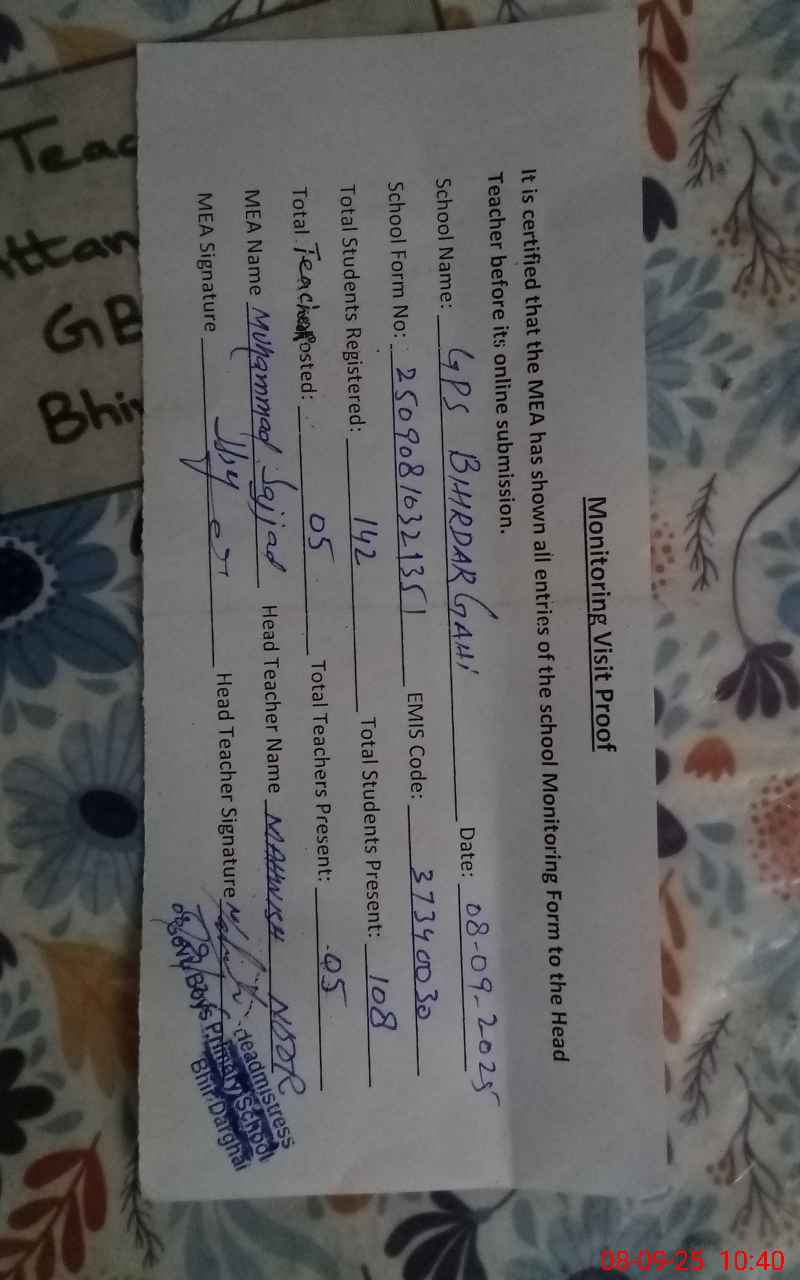 Monitoring Visit Proof
It is certified that the MEA has shown all entries of the school Monitoring Form to the Head
Teacher before its online submission.
School Name: GPS BHIRDAR GAHI Date: 08-09-2025
School Form No: 25090810321351 EMIS Code: 37340030
Total Students Registered: 142 Total Students Present: 108
Total Teachers Posted: 05 Total Teachers Present: 05
MEA Name Muhammad Sajjad Head Teacher Name MAHNISH
MEA Signature Head Teacher Signature
Headmistress
Govt, Boys Primary School
Bhir Darghai
Teac
ttan
GB
Bhir
08-09-25 10:40